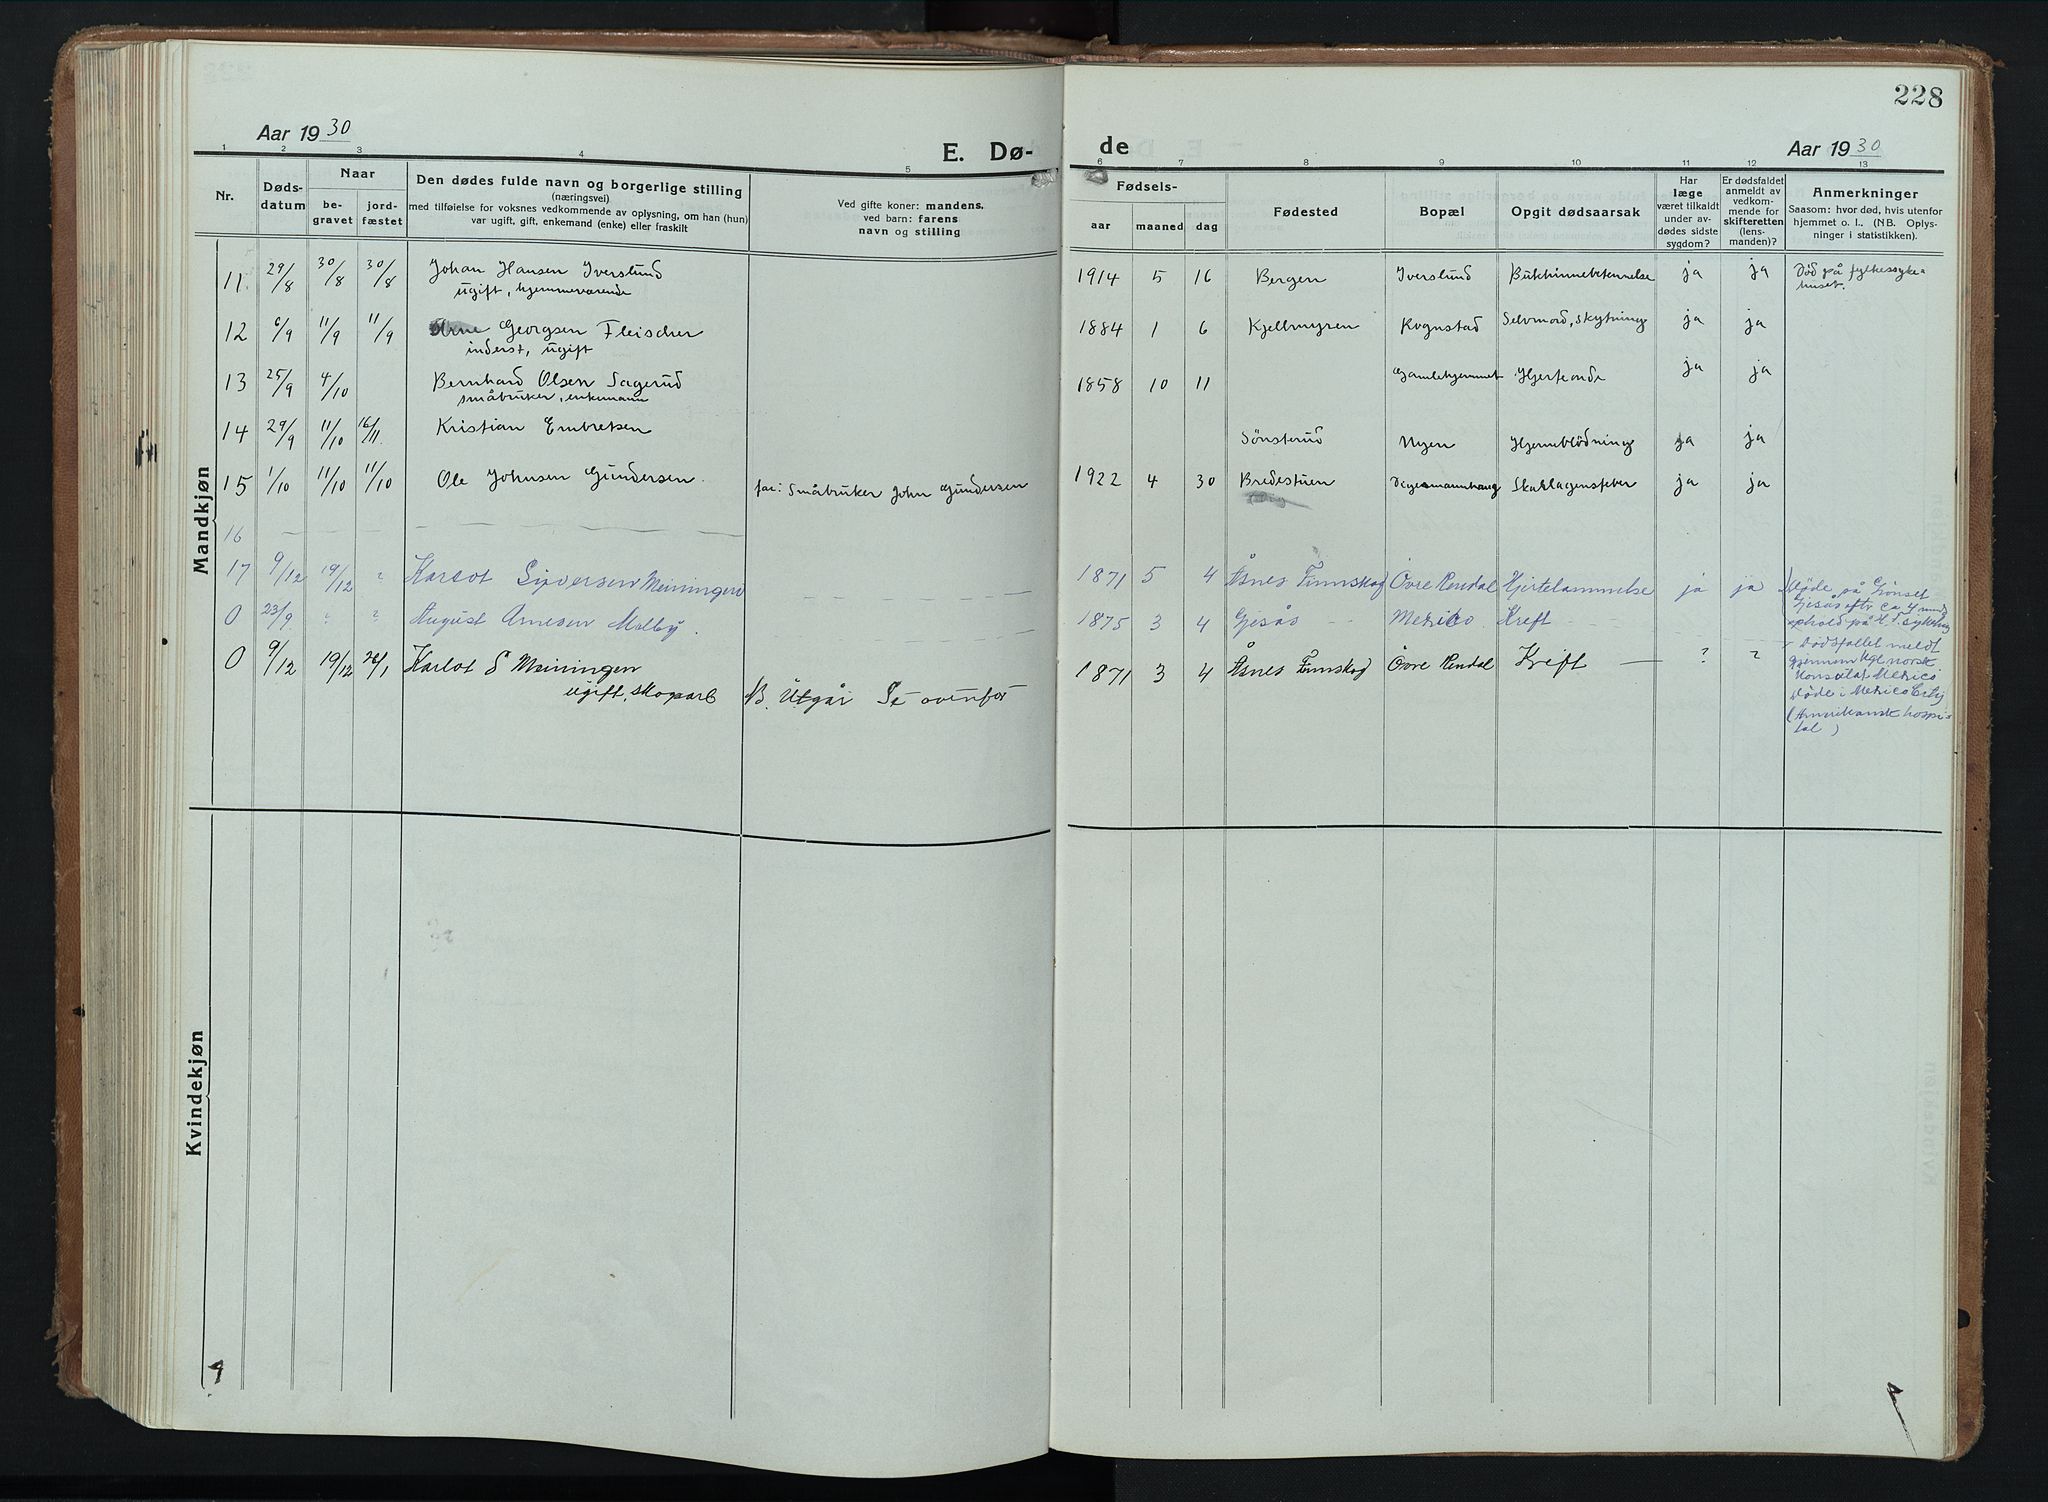 228
Aar 1930
E. Dø-
de
Aar 1930
1 2 3 4 5 6 7 8 9 10 11 12 13
Nr.
Døds-
datum
Naar
be-
gravet
jord-
fæstet
Den dødes fulde navn og borgerlige stilling
(næringsvei)
med tilføielse for voksnes vedkommende av oplysning, om han (hun)
var ugift, gift, enkemand (enke) eller fraskilt
Ved gifte koner: mandens,
ved barn: farens
navn og stilling
Fødsels-
aar
maaned
dag
Fødested
Bopæl
Opgit dødsaarsak
Har
læge
været tilkaldt
under av-
dødes sidste
sygdom?
Er dødsfaldet
anmeldt av
vedkom-
mende for
skifteretten
(lens-
manden)?
Anmerkninger
Saasom: hvor død, hvis utenfor
hjemmet o. l.. (NB. Oplys-
ninger i statistikken).
Mandkjøn
11 29/8 30/8 30/8 Johan Hansen Iverslund 1914 5 16 Bergen Iverslund Bukhinnebetennelse ja ja Død på fylkessyke-
ugift, hjemmeværende huset.
12 6/9 11/9 11/9 Arne Georgsen Fleischer 1884 1 6 Kjellmyren Rognstad Selvmord, skytning ja ja
inderst, ugift
13 25/9 4/10 Bernhard Olsen Sagerud 1858 10 11 Gamlehjemmet Hjerteonde ja ja
småbruker, enkemann
14 29/9 11/10 16/11 Kristian Embretsen Sønsterud Nyen Hjerneblödning ja ja
15 1/10 11/10 11/10 Ole Johnsen Gundersen. far: Småbruker John Gundersen 1922 4 30 Bredestuen Skarlagensfeber ja ja
16
17 9/12 19/12 ? Karlot Sipversen Meiningen 1871 5 4 Åsnes Finnskog Övre Rendal Hjertelammelse ja ja Døde på Gönset
0 23/9 ? ? August Arnesen Melby. 1875 3 4 Gjesås Mexico Kreft
0 9/12 19/12 26/1 Karlot S Meiningen 1871 3 4 Åsnes Finnskog Övre Rendal Kreft ? ?
ugift, skogsarb NB. Utgår Se ovenfor
Gjesås eftr ca 4 mnds
ophold på
Dødsfallet meldt
gjennem Kgl norsk
Konsulat Mexico
Døde i Mexico City
(Amerikansk hospi-
tal)
Kvindekjøn